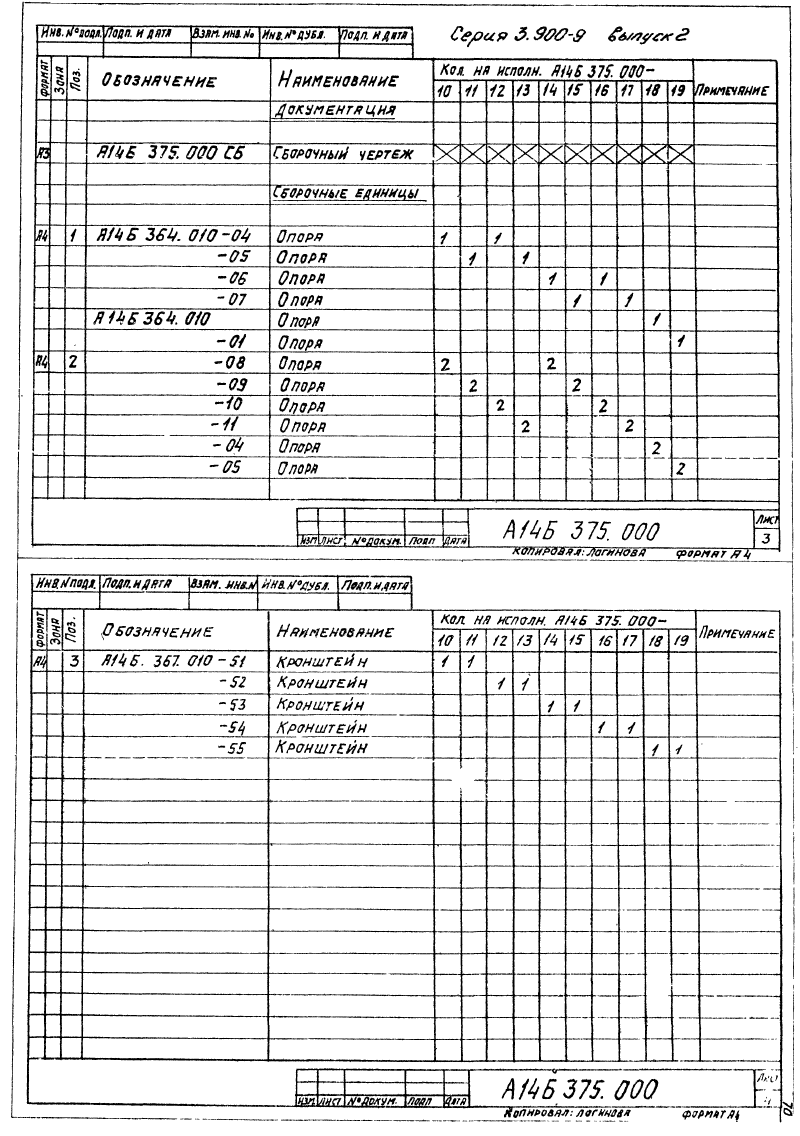 Серия 3.900-9 Выпуск 2
Инв. № подл. Подп. и дата Взам. инв. № Инв. № дубл. Подп. и дата
Формат Зона Поз. Обозначение Наименование Кол. на исполн. А14Б 375.000— Примечание
10 11 12 13 14 15 16 17 18 19
Документация
А3 А14Б 375.000 СБ Сборочный чертеж
Сборочные единицы
А4 1 А14Б 364.010-04 Опора 1 1
-05 Опора 1 1
-06 Опора 1 1
-07 Опора 1 1
А14Б 364.010 Опора 1
-01 Опора 1
А4 2 -08 Опора 2 2
-09 Опора 2 2
-10 Опора 2 2
-11 Опора 2 2
-04 Опора 2
-05 Опора 2
Изм Лист № докум. Подп Дата А14Б 375.000 Лист 3
Копировал: Логинова Формат А4
Инв. № подл. Подп. и дата Взам. инв. № Инв. № дубл. Подп. и дата
Формат Зона Поз. Обозначение Наименование Кол. на исполн. А14Б 375.000— Примечание
10 11 12 13 14 15 16 17 18 19
А4 3 А14Б. 367.010-51 Кронштейн 1 1
-52 Кронштейн 1 1
-53 Кронштейн 1 1
-54 Кронштейн 1 1
-55 Кронштейн 1 1
Изм Лист № докум. Подп Дата А14Б 375.000 Лист 4
Копировал: Логинова Формат А4
70